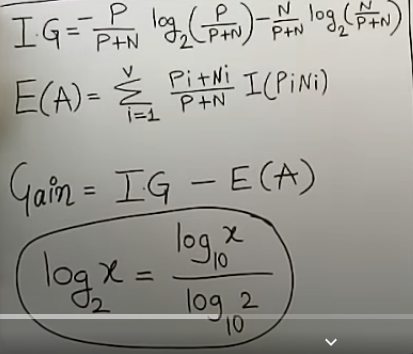 I.G = -P/P+N log₂(P/P+N) - N/P+N log₂(N/P+N)
E(A) = ∑ᵢ₌₁ᵛ Pi+Ni/P+N I(PiNi)
Gain = I.G - E(A)
log₂x = log₁₀x/log₁₀2